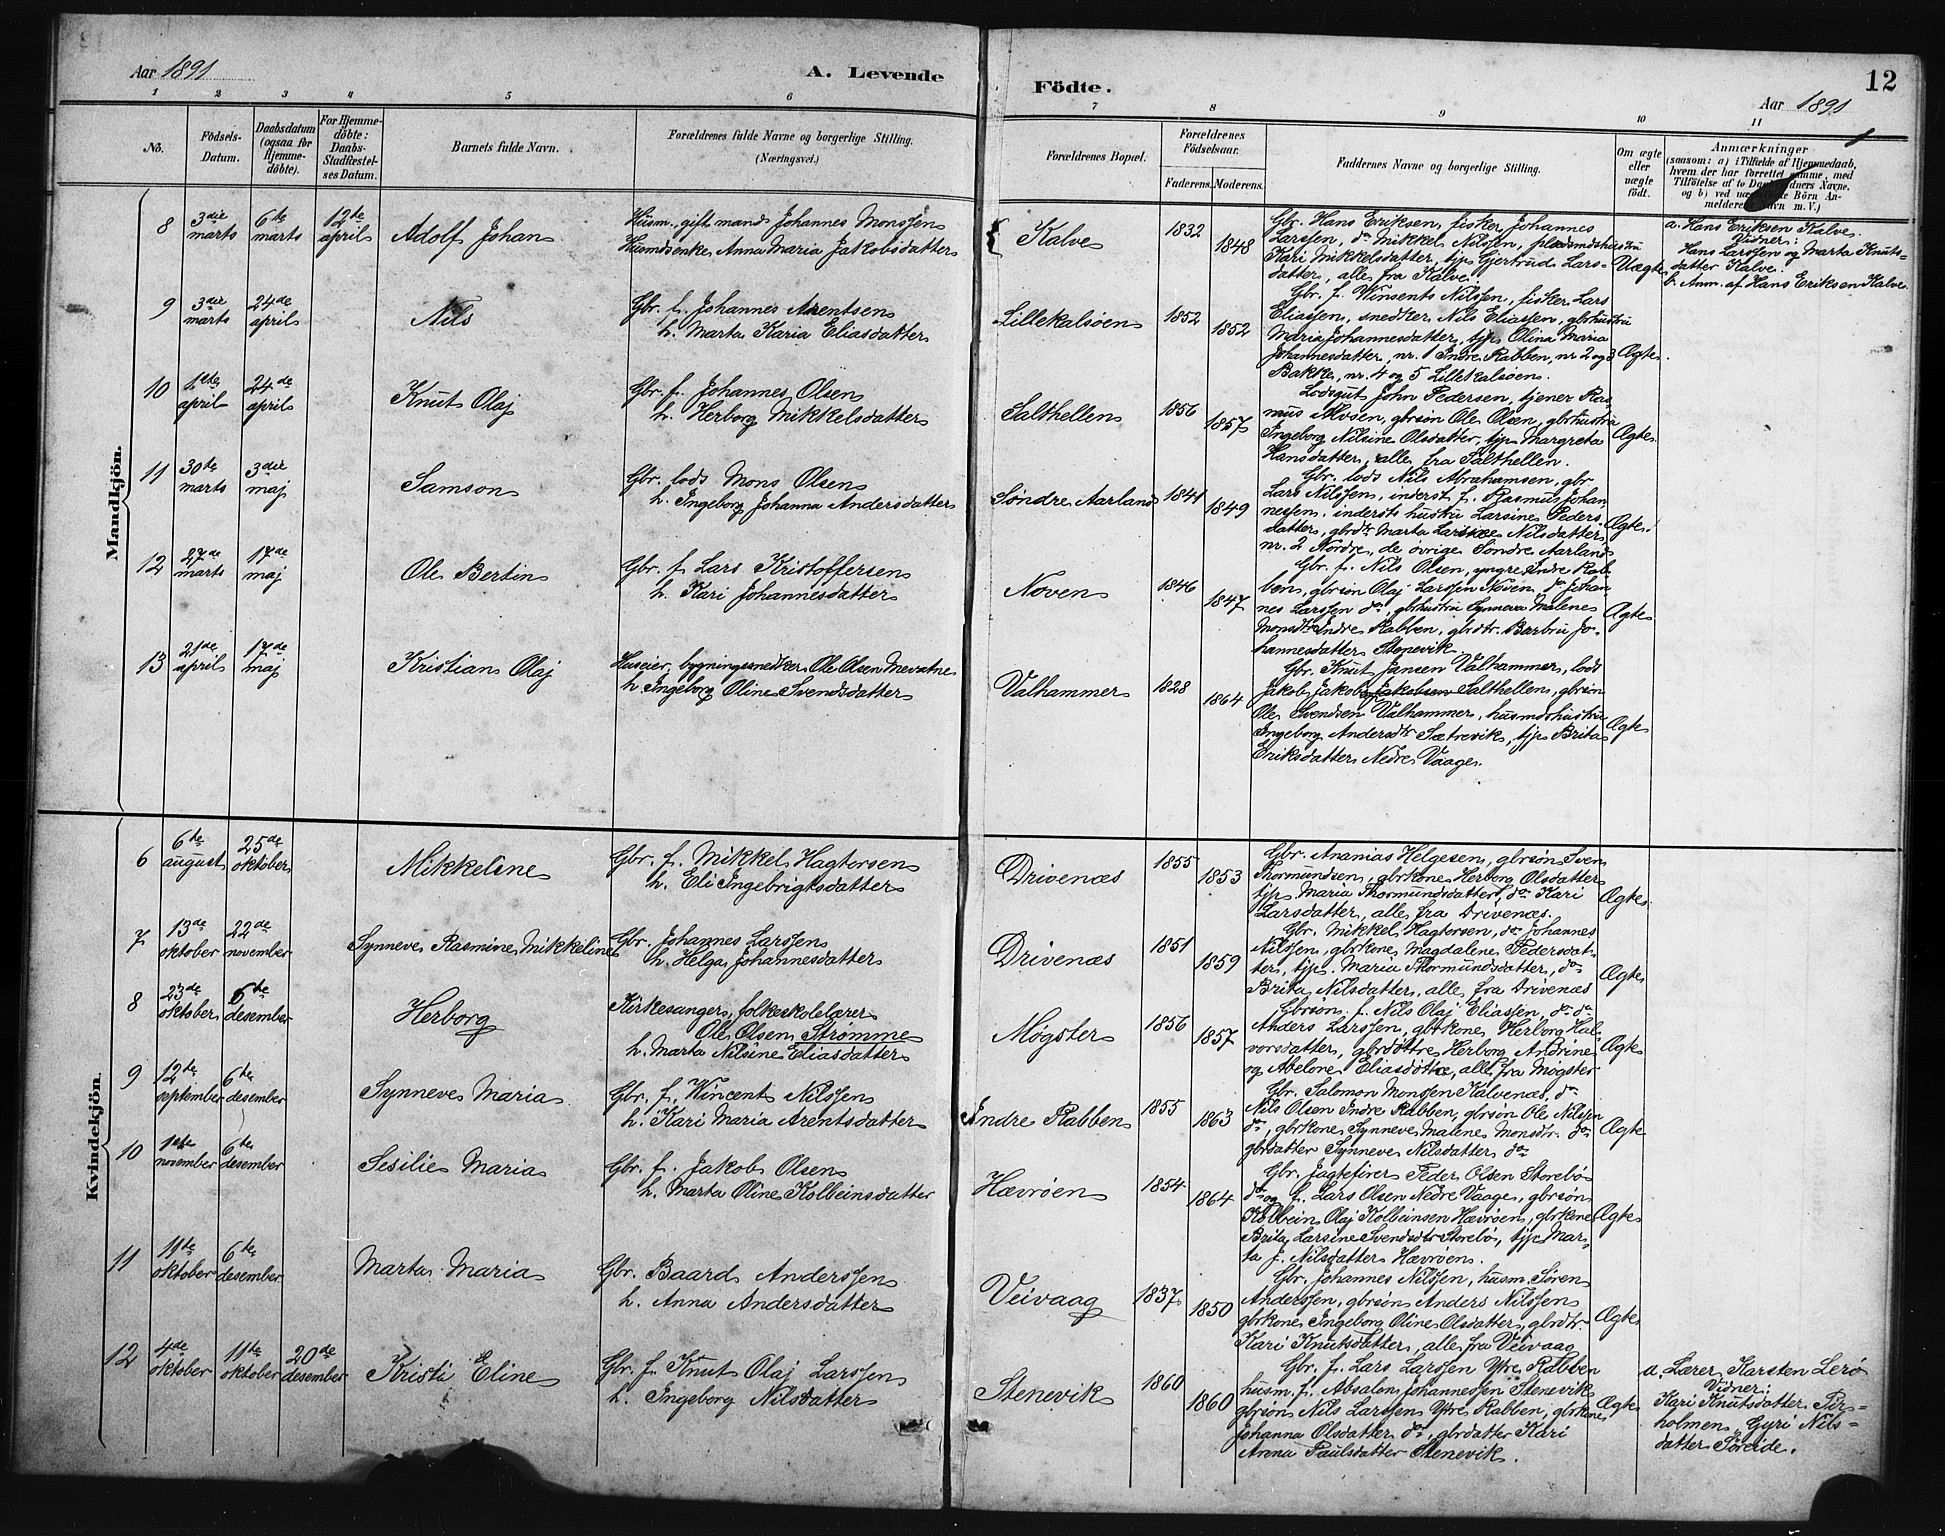 Aar 1891
A. Levende
Födte.
12
Aar 1891
1 2 3 4 5 6 7 8 9 10 11
No.
Födsels-Datum.
Daabsdatum (ogsaa for Hjemme-döbte).
For Hjemme-döbte: Daabs-Stadfæstel-ses Datum.
Barnets fulde Navn.
Forældrenes fulde Navne og borgerlige Stilling. (Næringsvei.)
Forældrenes Bopæl.
Forældrenes Födselsaar.
Faderens. Moderens.
Faddernes Navne og borgerlige Stilling.
Om ægte eller uægte födt.
Anmærkninger
(saasom: a) i Tilfælde af Hjemmedaab,
hvem der har forrettet samme, med
Mandkjön.
8 3die marts 6te marts 12te april Adolf Johan
Husm., gift mand Johannes Monssen
Anna Maria Jakobsdatter
Kalve 1832 1848
Gbr. Hans Eriksen, fisker Johannes
Larssen, do Mikkel Nilssen, pladsmdshustru
Kari Mikkelsdatter, tjp. Gjertrud Lars-
datter, alle fra Kalve.
Uægte
a. Hans Eriksen Kalve.
Vidner:
Hans Larssen og Marta Knuts-
datter Kalve.
b. Anm. af Hans Eriksen Kalve
9 3die marts 24de april Nils
Gbr. f. Johannes Arentsen
h. Marta Karia Eliasdatter
Lillekalsøen 1852 1852
Gbr. f. Winsents Nilssen, fisker Lars
Eliassen, snedker Nils Eliassen, gbrhustru
Maria Johannesdatter, tjp. Olina Maria
Johannesdatter, nr. 1 Indre Rabben, nr 2 og 3
Bakke, nr. 4 og 5 Lillekalsøen.
Ægte.
10 1ste april 24de april Knut Olaj
Gbr. f. Johannes Olsen
h. Herborg Mikkelsdatter
Salthellen 1856 1857
Lodsgut John Pedersen, tjener Ras-
mus Alvsen, gbrsøn Ole Olsen, gbrhustru
Ingeborg Nilsine Olsdatter, tjp. Margreta
Hansdatter, alle fra Salthellen.
Ægte.
11 30te marts 3die maj Samson
Gbr. lods Mons Olsen
h. Ingeborg Johanna Andersdatter
Søndre Aarland 1841 1849
Gbr. lods Nils Abrahamsen, gbr
Lars Nilssen, inderst f. Rasmus Johan-
nessen, inderst hustru Larsine Peders-
datter, gbrdtr. Marta Larsine Nilsdatter,
nr. 2 Nordre, de øvrige Søndre Aarland
Ægte.
12 27de marts 17de maj Ole Bertin
Gbr. f. Lars Kristoffersen
h. Kari Johannesdatter
Noven 1846 1847
Gbr. f. Nils Olsen, yngre Indre Rab-
ben, gbrsøn Olaj Larssen Noven, do Johan-
nes Larssen do, gbrhustru Synneva Malene
Monsdtr Indre Rabben, gbrdtr. Barbru Jo-
hannesdatter Stenevik.
Ægte
13 21de april 17de maj Kristian Olaj
Huseier, bygningssnedker Ole Olsen Mevatne
h. Ingeborg Oline Svendsdatter
Valhammer 1828 1864
Gbr. Knut Jansen Valhammer, lods
Jakob Jakobsen Salthellen, gbrsøn
Ole Svendsen Valhammer, husmdshustru
Ingeborg Andersdtr Sætrevik, tjp. Brita
Eriksdatter Nedre Vaage.
Ægte
Kvindekjön.
6 6te august 25de oktober Mikkeline
Gbr. f. Mikkel Hagtersen
h. Eli Ingebrigtsdatter
Drivenæs 1855 1853
Gbr. Ananias Helgesen, gbrsøn Sven
Thormundsen, gbrkone Herborg Olsdatter,
tjp. Maria Thormundsdatter, do Kari
Larsdatter, alle fra Drivenæs.
Ægte
7 13de oktober 22de november Synneve Rasmine Mikkeline
Gbr. Johannes Larssen
h. Helga Johannesdatter
Drivenæs 1851 1859
Gbr. Mikkel Hagtersen, do Johannes
Nilssen, gbrkone Magdalene Pedersdat-
ter, tjp. Maria Thormundsdatter, do
Brita Nilsdatter, alle fra Drivenæs
Ægte
8 23de oktober 6te desember Herborg
Kirkesanger, folkeskolelærer
Ole Olsen Strømme
h. Marta Nilsine Eliasdatter
Møgster 1856 1857
Gbrsøn f. Nils Olaj Eliassen, do do
Anders Larssen, gbrkone Herborg Hal-
vorsdatter, gbrdøttre Herborg Andrine
og Abelone Eliasdøttre, alle fra Møgster
Ægte
9 12te september 6te desember Synneve Maria
Gbr. f. Wincent Nilssen
h. Kari Maria Arentsdatter
Indre Rabben 1855 1863
Gbr. Salomon Monssen Kalvenæs, do
Nils Olsen Indre Rabben, gbrsøn Ole Nilssen
do, gbrkone Synneve Malene Monsdtr. do
gbrdatter Synneve Nilsdatter do
Ægte
10 1ste november 6te desember Sesilie Maria
Gbr. f. Jakob Olsen
h. Marta Oline Kolbeinsdatter
Hævrøen 1854 1864
Gbr. Jagtefører Peder Olsen Storebø
do og f. Lars Olsen Nedre Vaage, gbrsøn
Kolbein Olaj Kolbeinsen Hævrøen, gbrkone
Brita Larsine Svendsdtr Storebø, tjp. Mar-
ta J. Nilsdatter Hævrøen.
Ægte
11 19de oktober 6te desember Marta Maria
Gbr. Baard Anderssen
h. Anna Andersdatter
Veivaag 1837 1850
Gbr. Johannes Nilssen, husm. Søren
Anderssen, gbrsøn Anders Nilssen
gbrkone Ingeborg Oline Olsdatter, gbrdtr.
Kari Knutsdatter, alle fra Veivaag
Ægte
12 4de oktober 11te oktober 20de desember Kristi Eline
Gbr. f. Knut Olaj Larssen
h. Ingeborg Nilsdatter
Stenevik 1860 1860
Gbr. f. Lars Larssen Ytre Rabben
husm. f. Absalon Johannessen Stenevik
gbrsøn Nils Larssen Ytre Rabben, gbrkone
Johanna Olsdatter do, gbrdatter Kari
Anna Paulsdatter Stenevik.
Ægte
a. Lærer Karsten Lerø
Vidner:
Kari Knutsdatter Pir-
holmen, Gyri Nils-
datter Søreide.